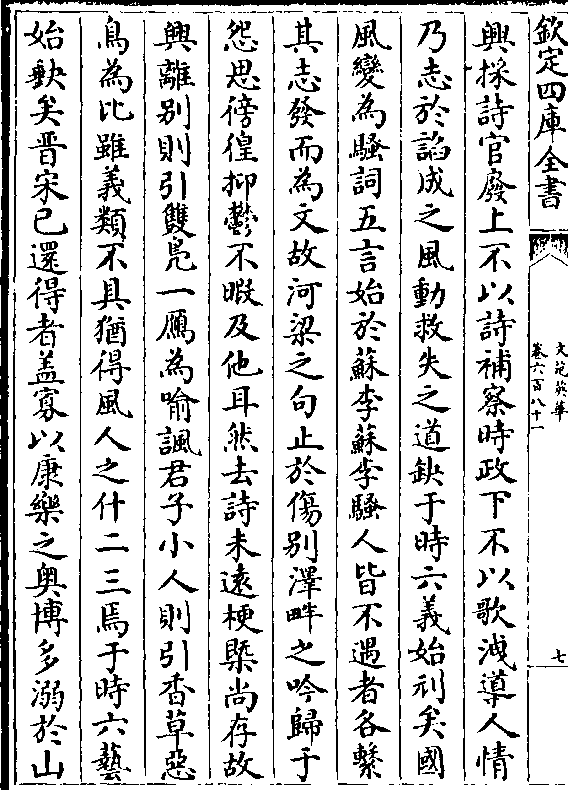 欽定四庫全書
文苑英華
卷六百八十一
七
興採詩官廢上不以詩補察時政下不以歌洩導人情
乃志於謟成之風動救失之道鈌于時六義始刓矣國
風變為騷詞五言始於蘇李蘇李騷人皆不遇者各繫
其志發而為文故河梁之句止於傷別澤畔之吟歸于
怨思徬徨抑鬱不暇及他耳然去詩未遠梗槩尚存故
興離别則引雙鳬一鴈為喻諷君子小人則引香草惡
鳥為比雖義類不具猶得風人之什二三焉于時六藝
始缺矣晋宋已還得者盖寡以康樂之奥博多溺於山